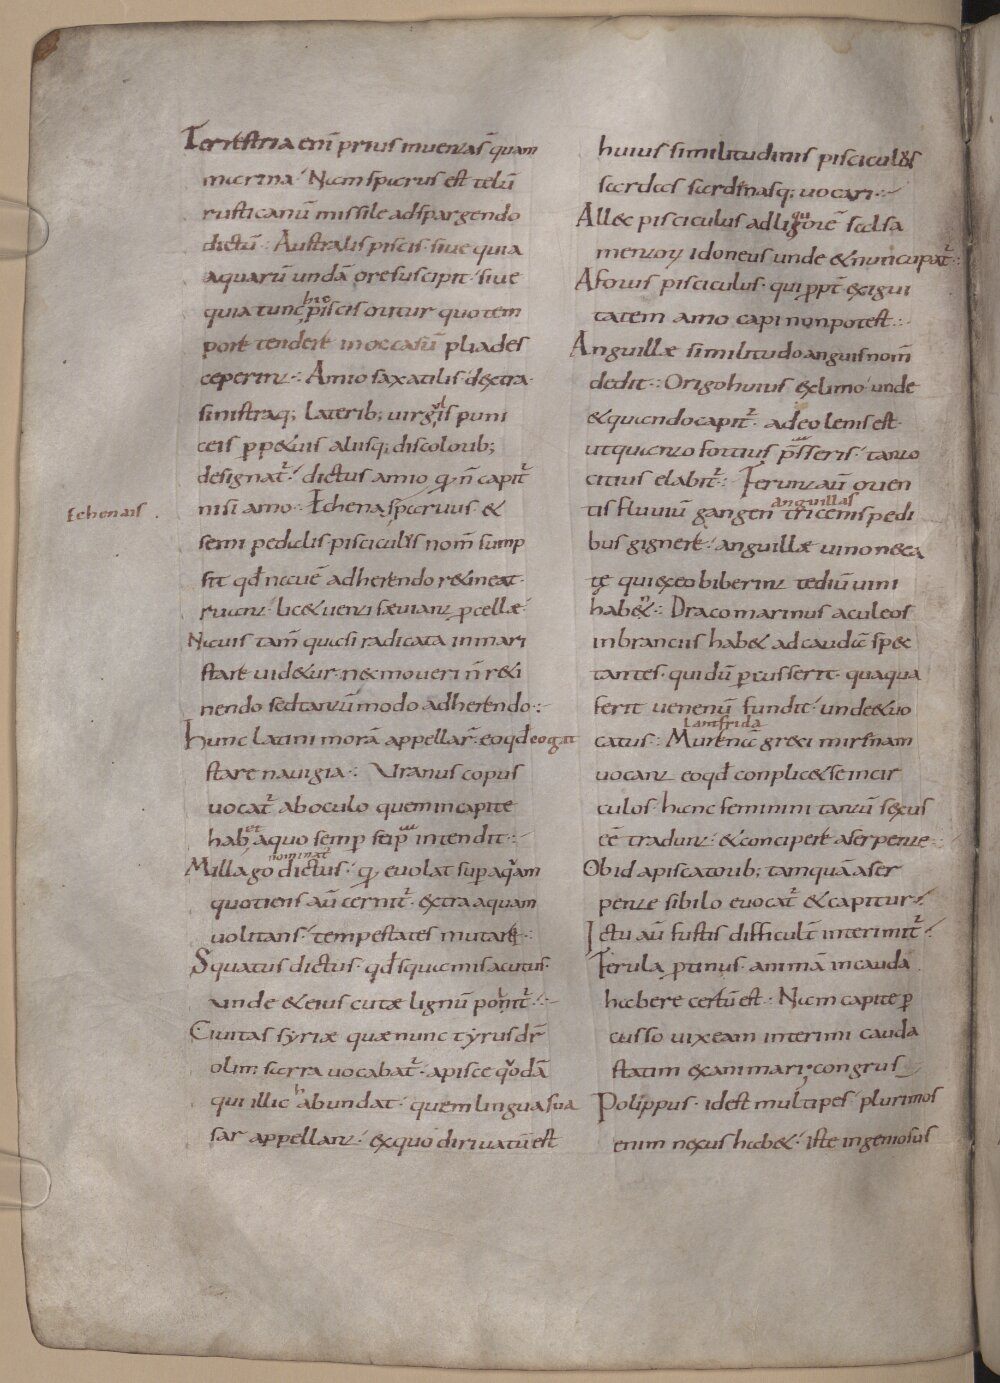 Terrestria enī prius inuenias̄ quam
marina· Nam sparus est telū
rusticanū missile ad spargendo
dictū·: Australis piscis· siue quia
aquarū undā ore suscipit· siue
hic
quia tunc piscis oritur quo tem
pore tendere in occasū pliades
ceperint·: Amio saxatilis· dextra
sinistraq; laterib; uirgis puni
ceis p̱petuis aliisq; discolorib;
designat᷒· dictus amio q̱ n̄ capit᷒
nisi amo·: Echenais
Echena sparuus &
semi pedalis· pisciculus nom̄ sump
sit qđ nauē adherendo retineat·
ruant lic& uenti sæuiant p̱cellæ·
Nauis tam̄ quasi radicata in mari
stare uidetur· nec moueri n̄ reti
nendo sed tantū modo adherendo·:
Hunc latini morā appellar̄· eo qđ cogat
stare nauigia·: Uranus copus
uocat᷒ ab oculo quem in capite
et
hab& a quo semp̱ seip̱ intendit·:
nominat᷒
Millago dictus· q̱ euolat sup̱ aqᵃm
quotiens aū cernit᷒· extra aquam
uolitans· tempestates mutare·:
Squatus dictus· qđ squamis acutus·
unde & eius cutæ lignū ponit᷒·:
Ciuitas syriæ quæ nunc tyrus dr̄
olim sarra uocabat᷒· a pisce qᵒdā
h
qui illic abundat· quem lingua sua
sar appellant· ex quo diriuatū est
huius similitudinis pisciculos
sardas sardinasq; uocari·:
Allec pisciculus ad liquorē salsa
mentorꝝ idoneus unde & nuncupat᷒·:
Aforus pisciculus· qui p̱pt̄ exigui
tatem amo capi non potest·:
Anguillæ similitudo anguis nom̄
dedit·: Origo huius ex limo· unde
& quando capit᷒· adeo lenis est·
ut quanto fortius p̄sseris· tanto
citius elabit᷒·: Ferunt aū orien
anguillas
tis fluuiū gangen tricenis pedi
bus gignere· anguillæ uino neca
tę qui ex eo biberint tediū uini
habent·: Draco marinus aculeos
in branciis hab& ad caudā spec
tantes· qui dū p̱cusserit· quaqua
ferit uenenū fundit· unde & uo
Lantfrida
catus·: Murenā greci mirsnam
uocant eo qđ conplic& se in cir
culos· hanc feminini tantū sexus
eē tradunt· & concipere a serpente·:
Ob id a piscatorib; tamquā a ser
pente sibilo euocat᷒ & capitur·:
Ictu aū fustis difficult̄ interimit᷒·:
Ferula p̱tinus· animā in cauda
habere certū est·: Nam capite p̱
cusso uix eam interimi cauda
statim exanimari; congrus
Polippus· id est multipes· plurimos
enim nexus hab&· iste ingeniosus